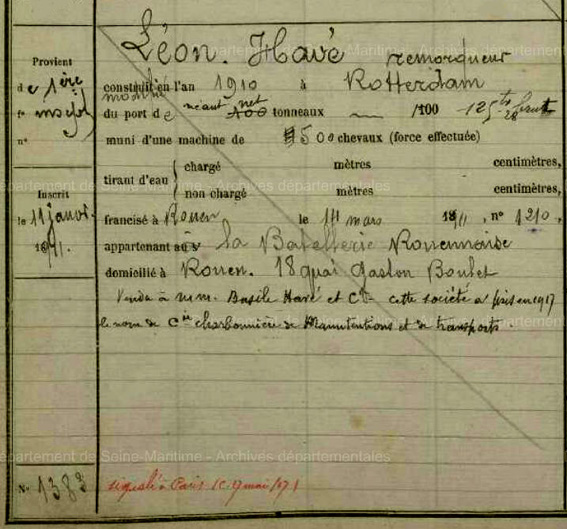 Léon. Havé remorqueur
Provient
de 1ère
inscr
n°
construit en l'an 1910 à Rotterdam
du port de néant net 100 tonneaux /100 125 tx 28 brut
muni d'une machine de 500 chevaux (force effectuée)
tirant d'eau { chargé mètres centimètres,
non chargé mètres centimètres,
Inscrit
le 11 janvr.
1911.
francisé à Rouen le mars 1911, n° 1210,
appartenant à la Batellerie Rouennaise
domicilié à Rouen. 18 quai Gaston Boulet
Vendu à MM. Basile Havé et Cie cette société a pris en 1917
le nom de Cie charbonnière de Manutentions et de transports.
N° 138
signalé à Paris (C. 9 mai
département de Seine-Maritime - Archives départementales